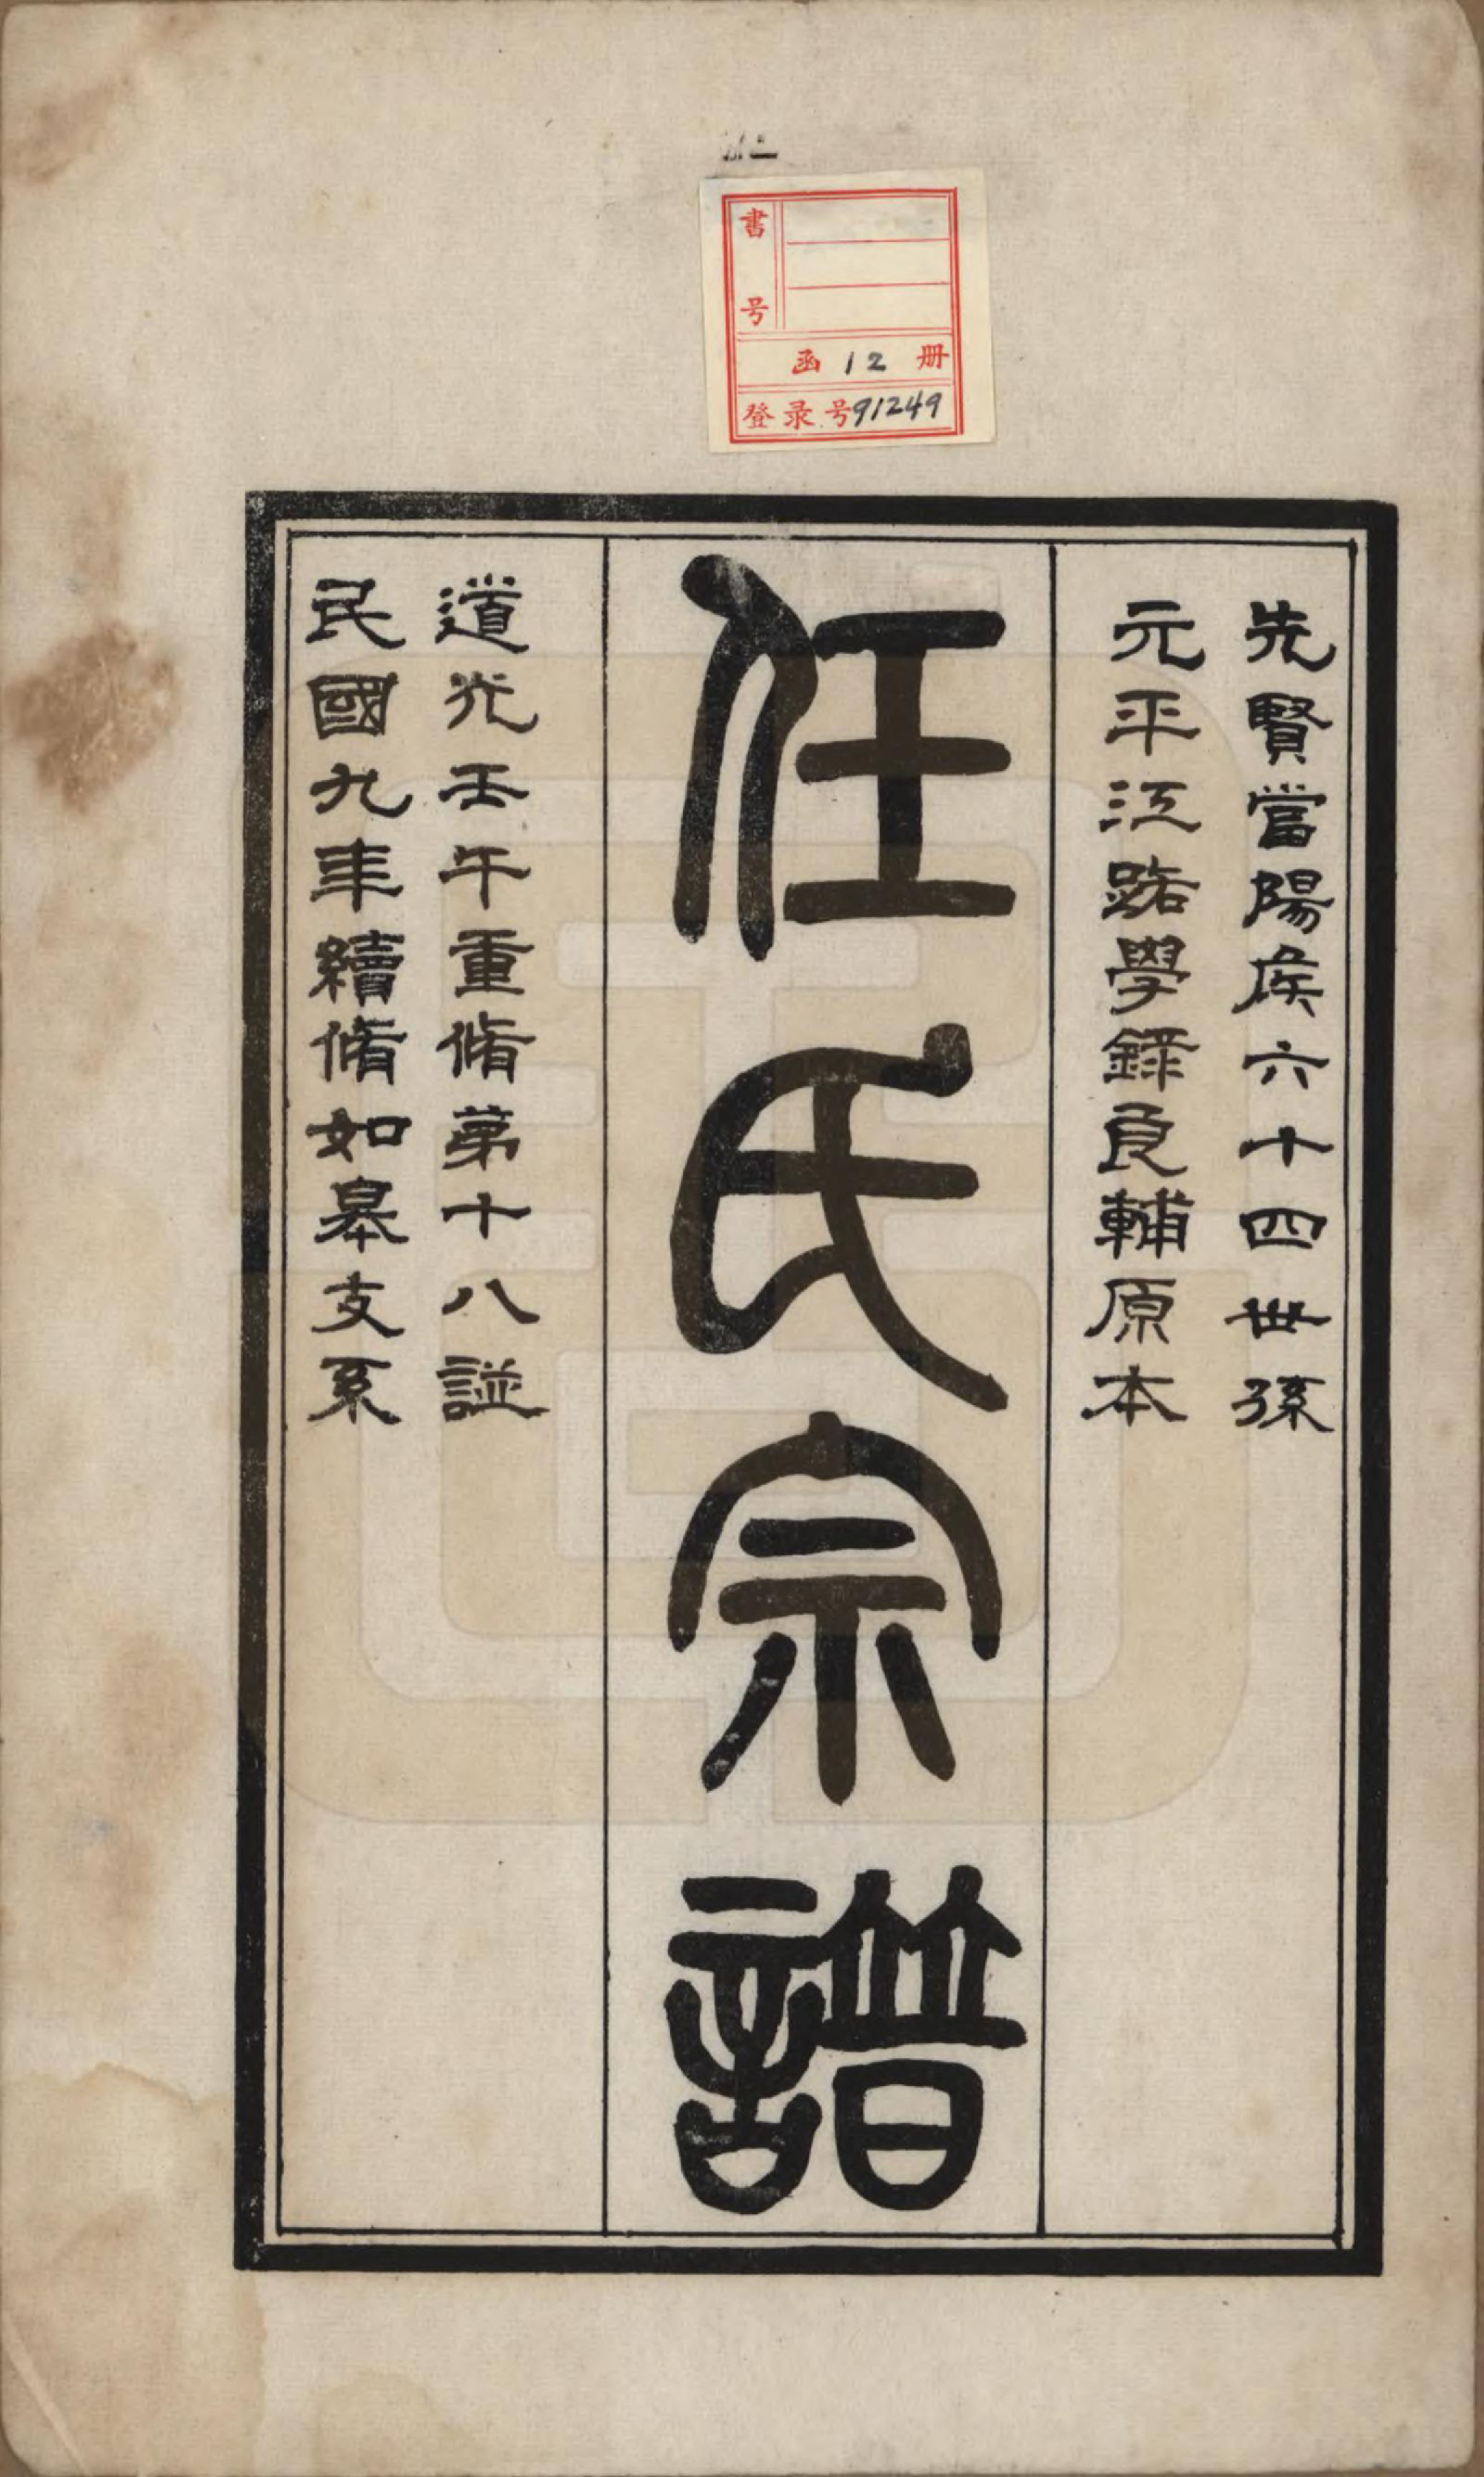 書号
函 12 册
登录号91249
先賢當陽侯六十四世孫
元平江路學錄良輔原本
任氏宗譜
道光壬午重脩第十八謚
民國九年續脩如皋支系